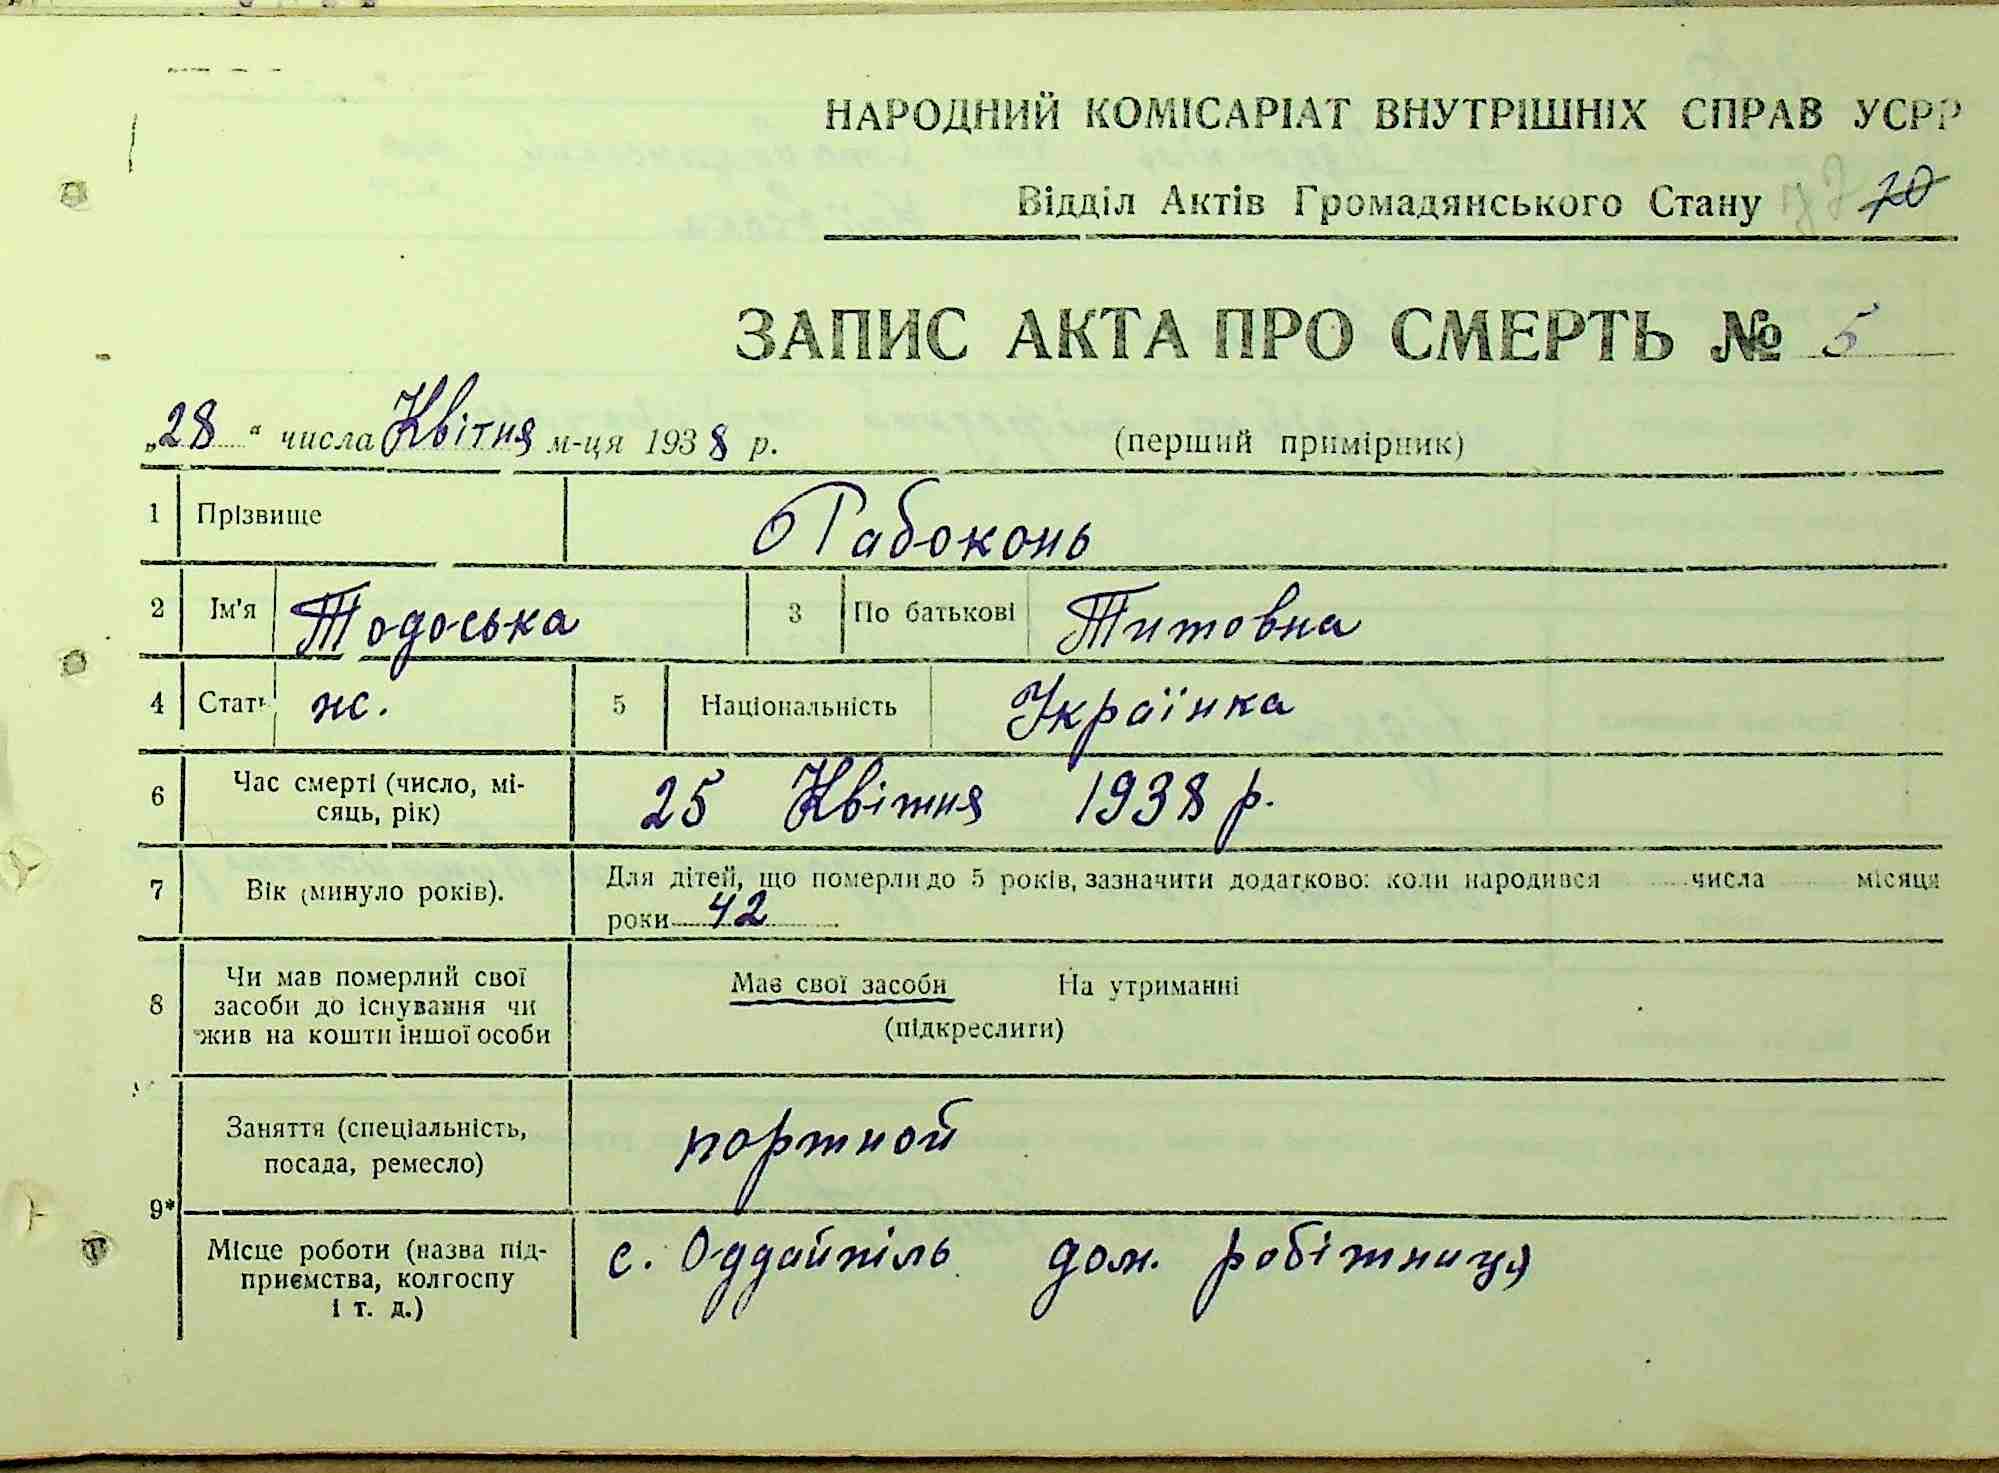 НАРОДНИЙ КОМІСАРІАТ ВНУТРІШНІХ СПРАВ УСРР
Відділ Актів Громадянського Стану 70
ЗАПИС АКТА ПРО СМЕРТЬ № 5
„28“ числа Квітня м-ця 1938 р. (перший примірник)
1 Прізвище Рабоконь
2 Ім'я Тодоська 3 По батькові Титовна
4 Стать ж. 5 Національність Українка
6 Час смерті (число, мі-
сяць, рік) 25 Квітня 1938 р.
7 Вік (минуло років). Для дітей, що померли до 5 років, зазначити додатково: коли народився числа місяця
роки 42
8 Чи мав померлий свої
засоби до існування чи
жив на кошти іншої особи
Має свої засоби На утриманні
(підкреслити)
9* Заняття (спеціальність,
посада, ремесло) портной
Місце роботи (назва під-
приємства, колгоспу
і т. д.) с. Оддайпіль дом. робітниця